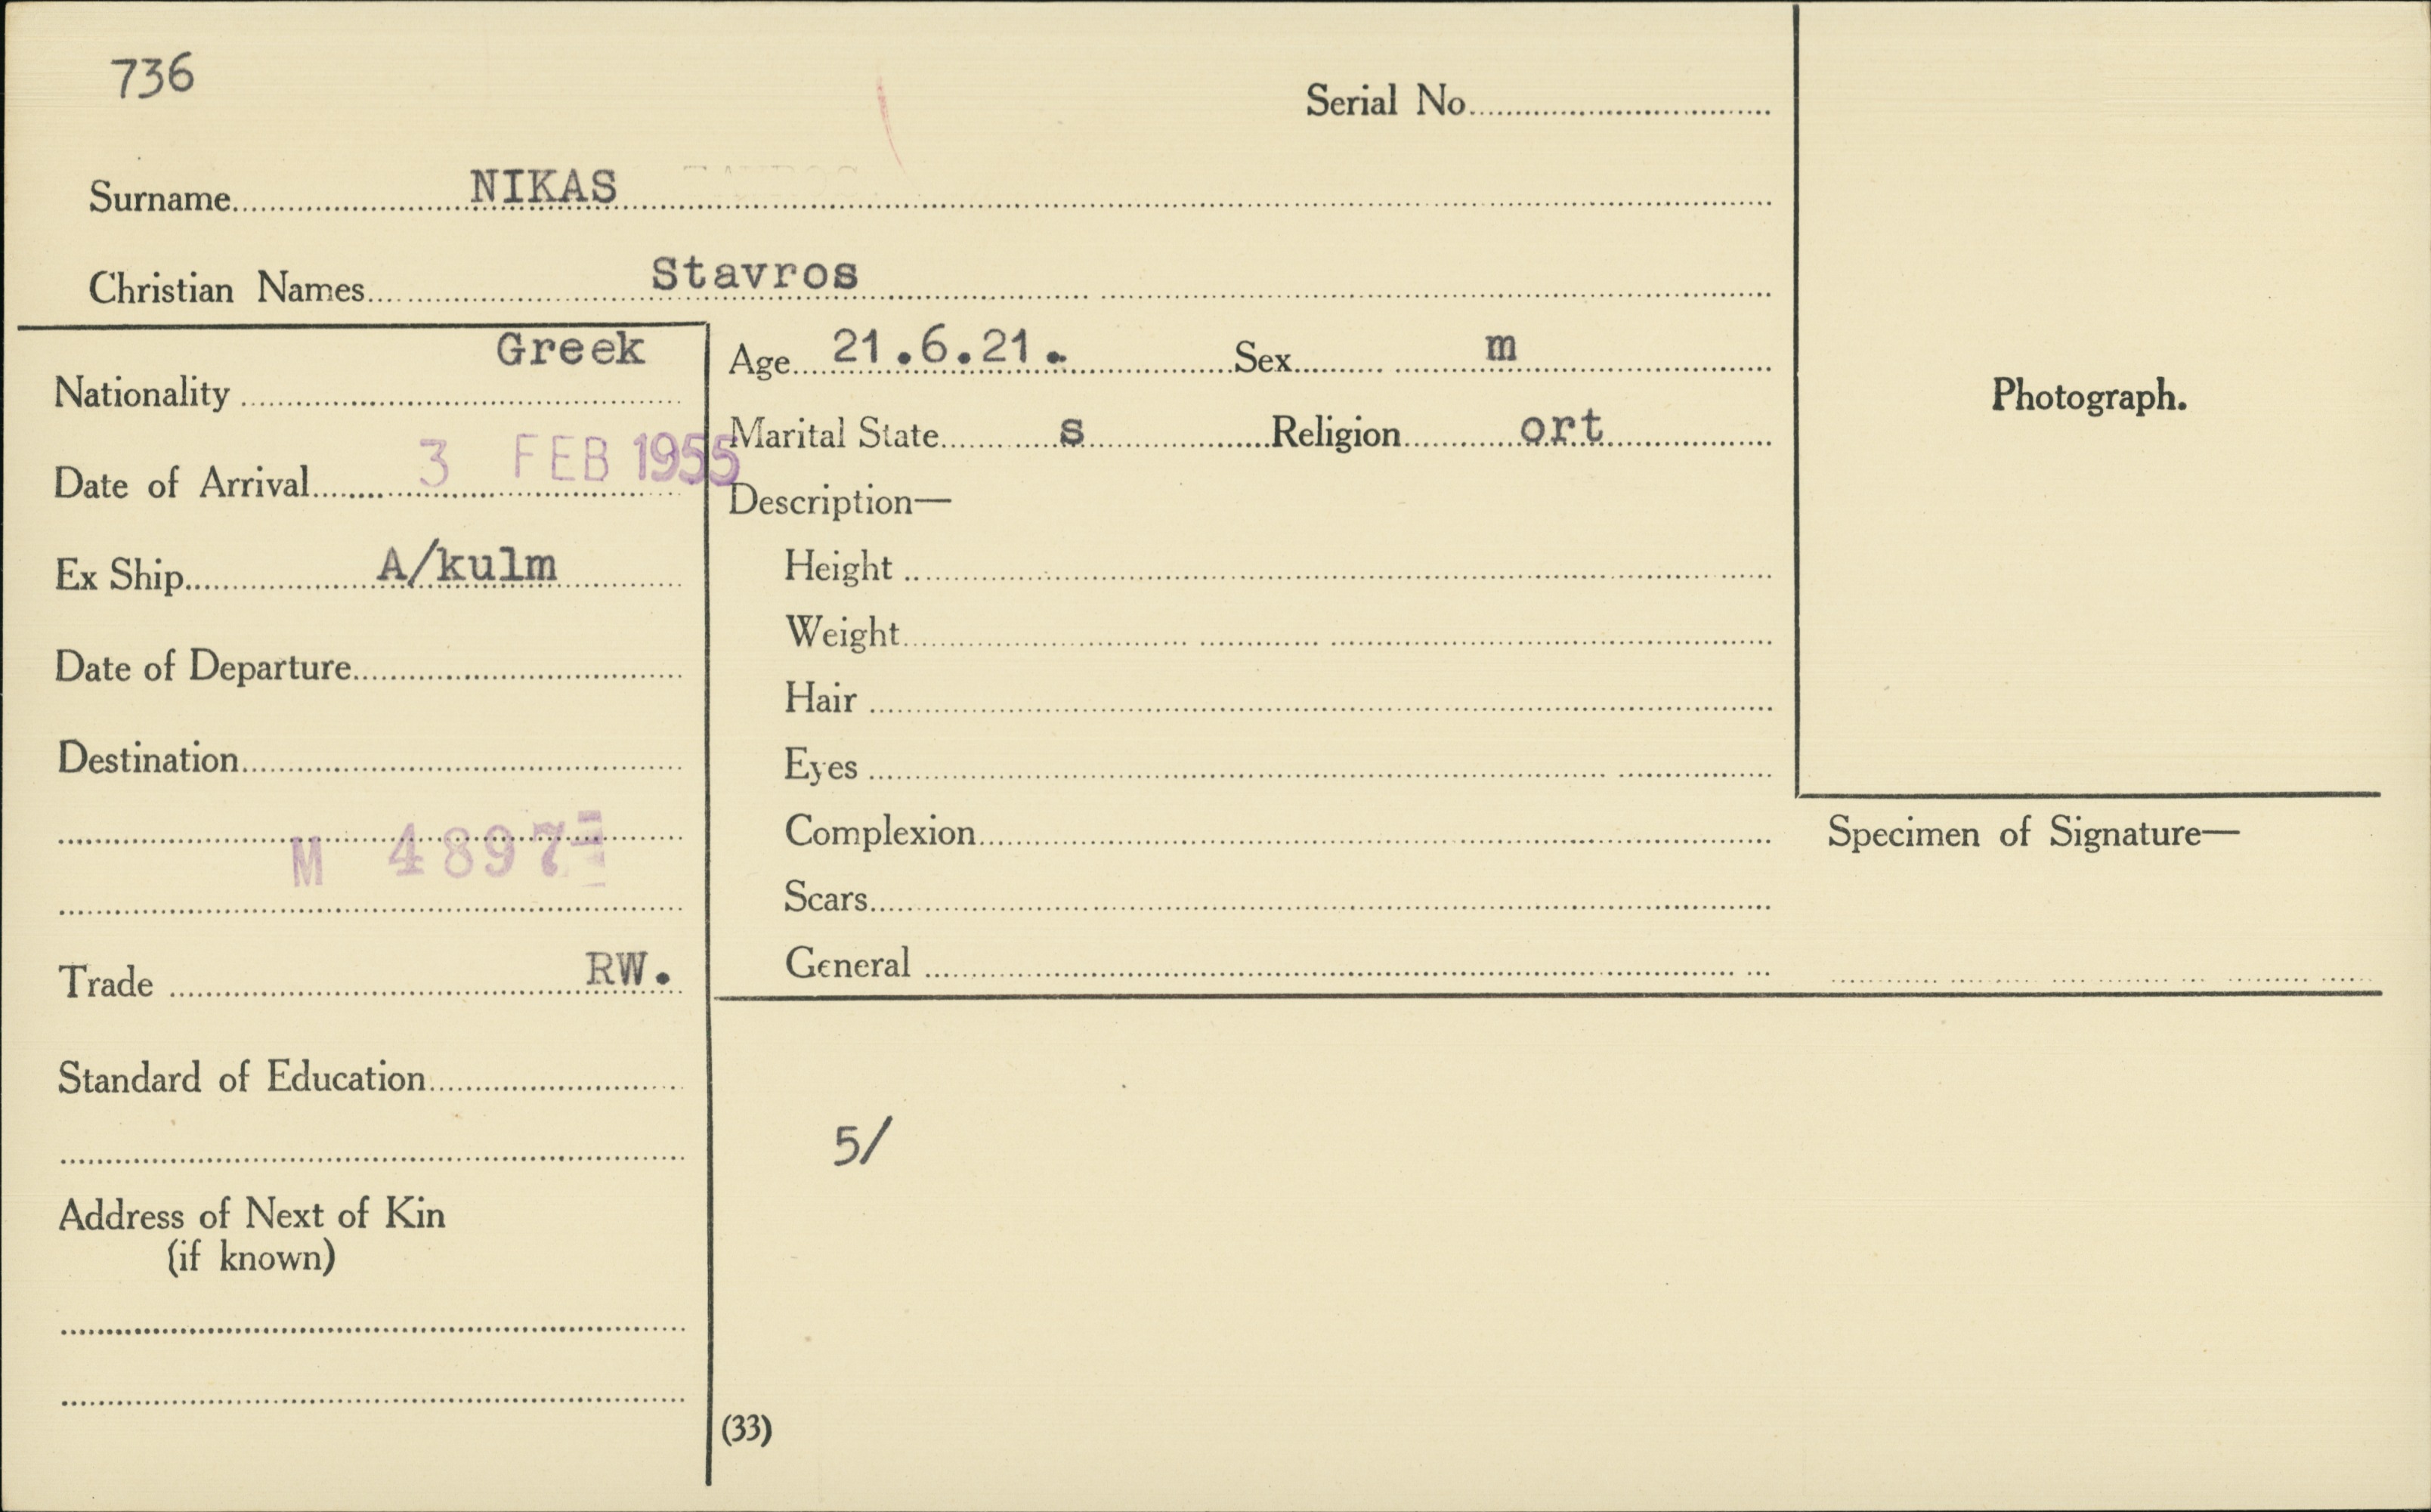 736
Serial No.
Surname NIKAS
Christian Names Stavros
Nationality Greek
Date of Arrival 3 FEB 1955
Ex Ship A/kulm
Date of Departure
Destination
M 4897
Trade RW.
Standard of Education
Address of Next of Kin
(if known)
Age 21.6.21. Sex m
Marital State s Religion ort
Description—
Height
Weight
Hair
Eyes
Complexion
Scars
General
Photograph.
Specimen of Signature—
5/
(33)